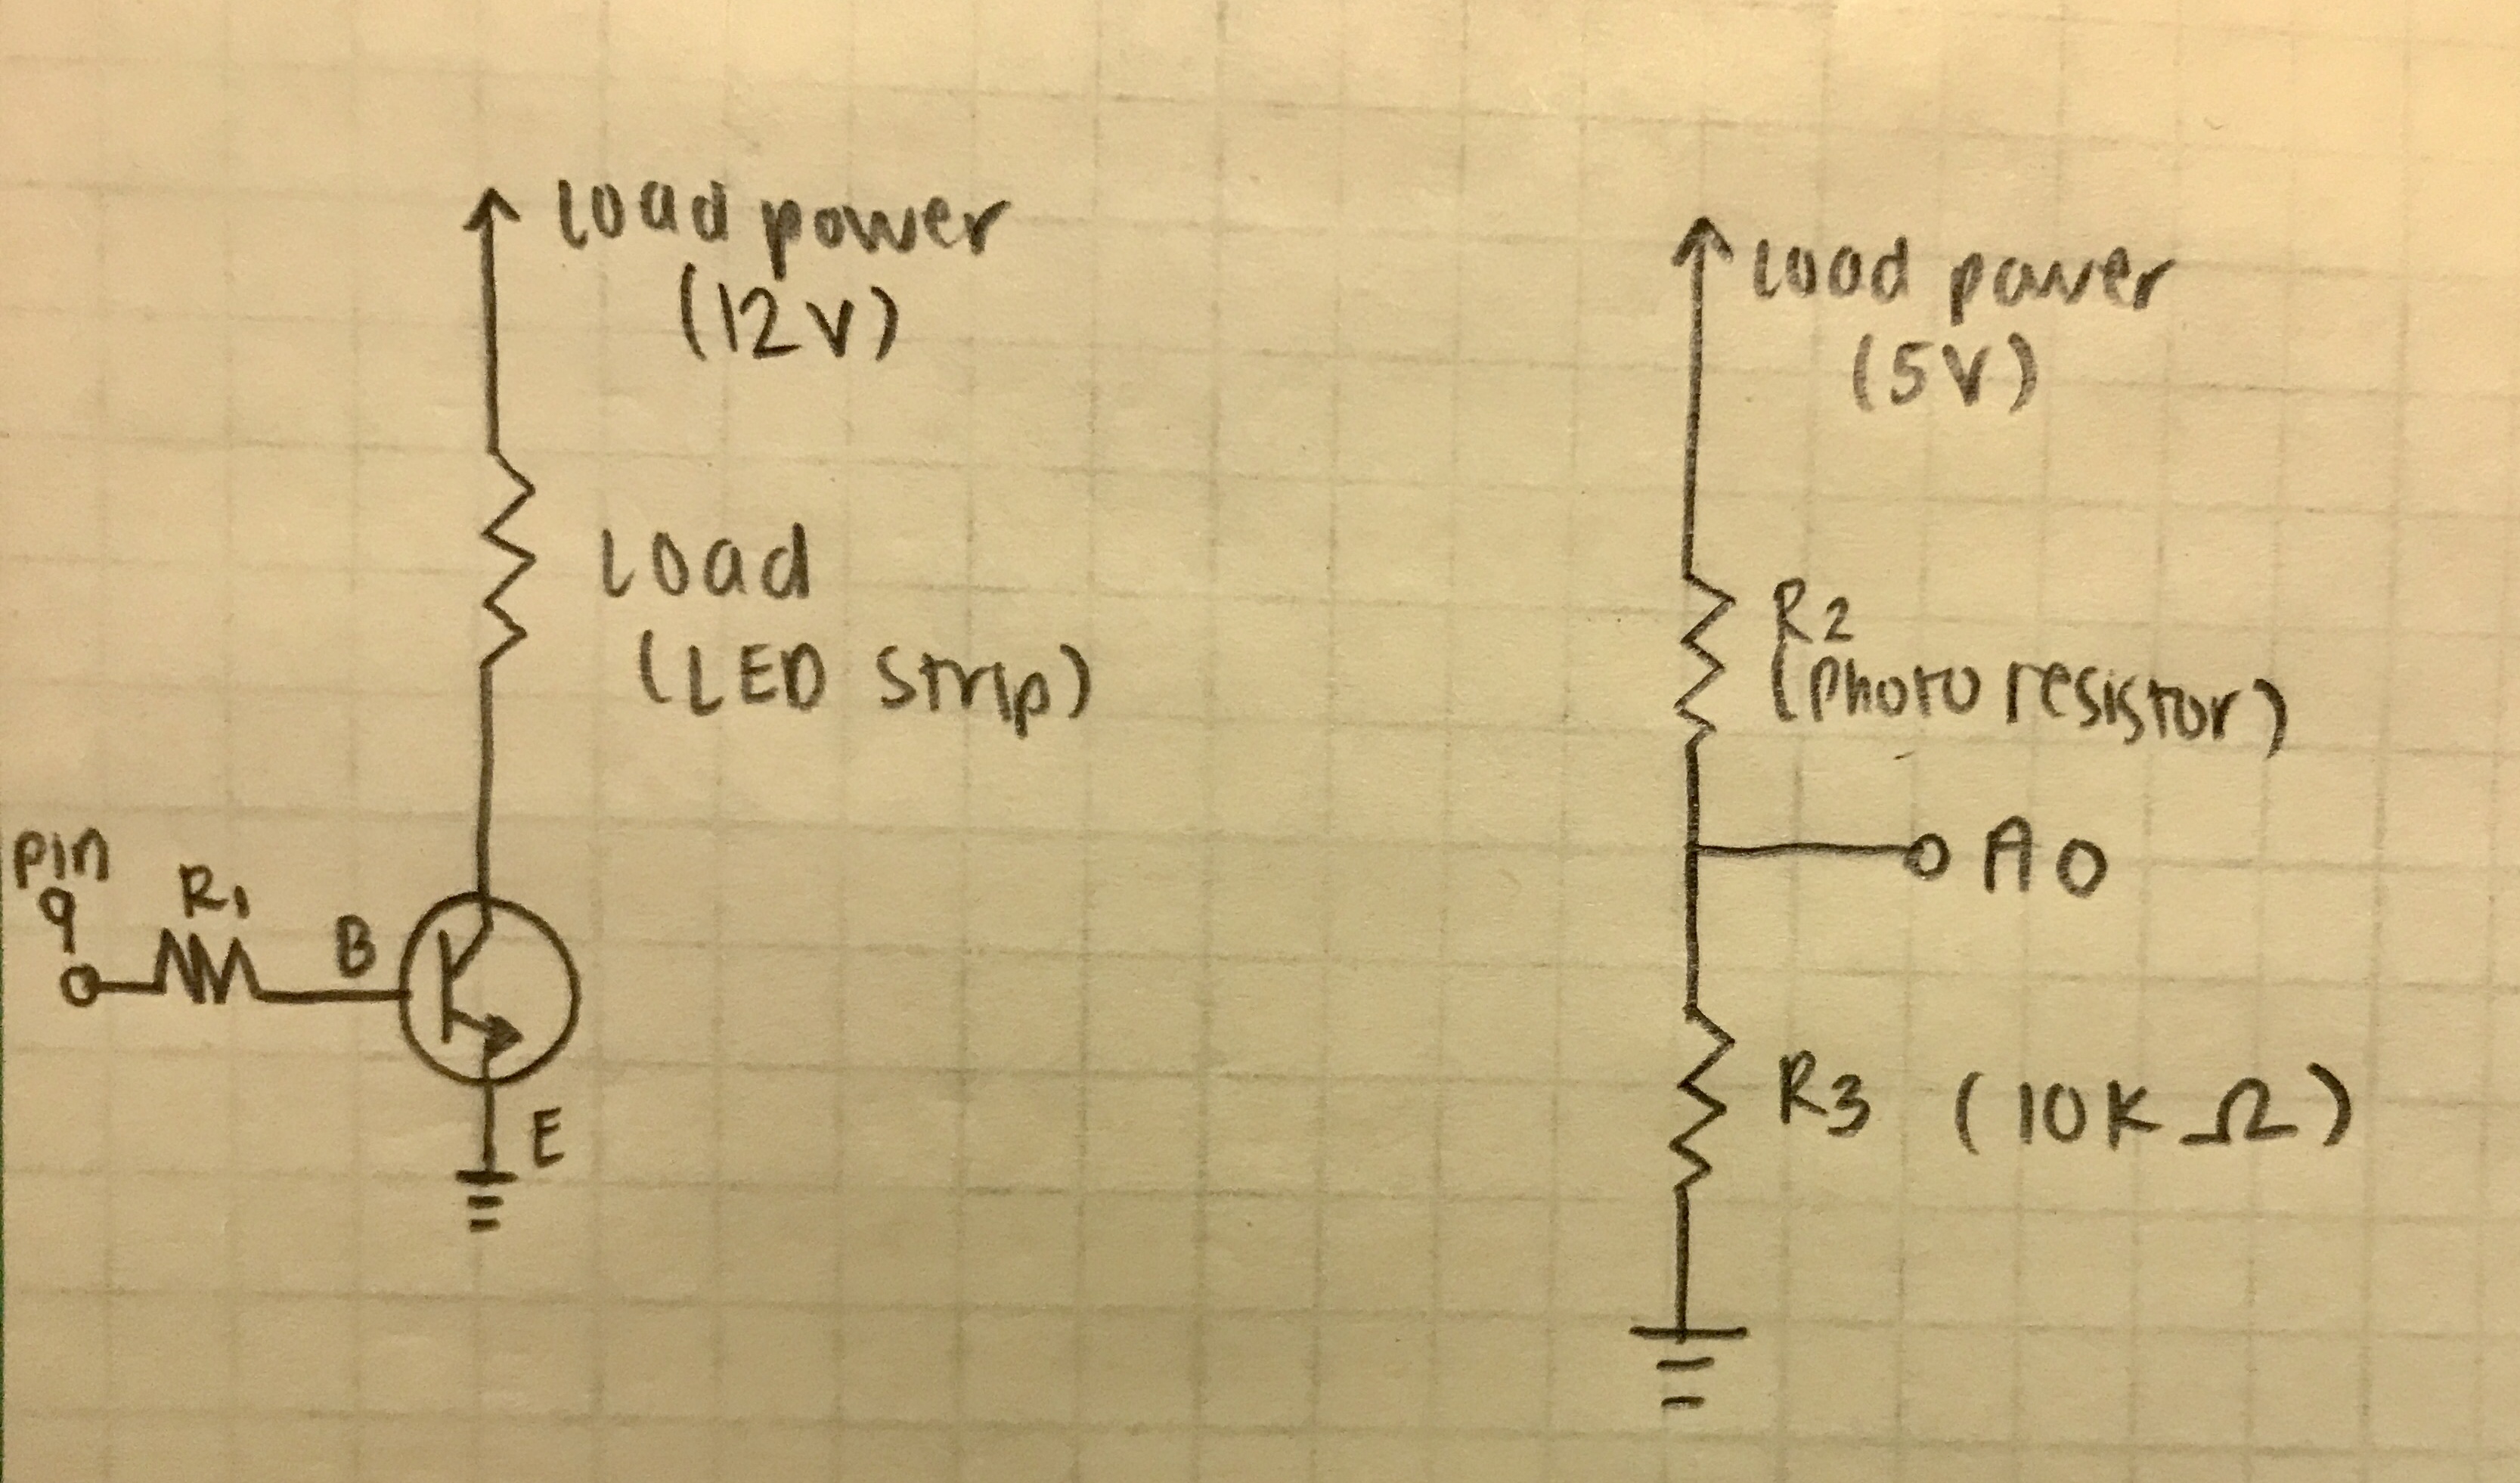 Load power
(12V)
Load
(LED Strip)
Pin
9
R1
B
E
Load power
(5V)
R2
(Photo resistor)
A0
R3 (10K Ω)